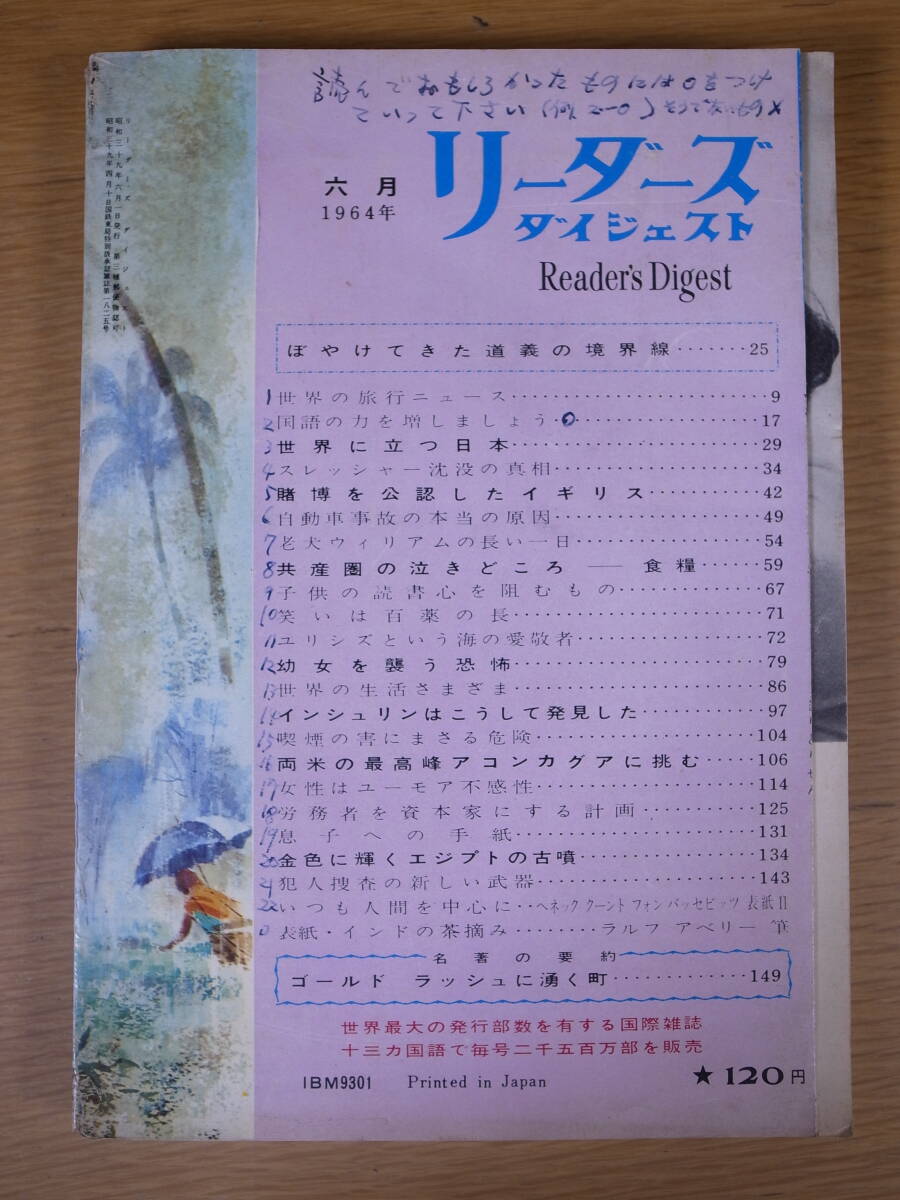 読んでおもしろかったものには0をつけ
ていって下さい(例2-0)そうでないもの×
リーダーズ
ダイジェスト
六月
1964年
Reader's Digest
リーダーズ ダイジェスト
昭和三十九年六月一日発行 第三種郵便物認可
昭和二十九年四月十日国鉄東局特別扱承認雑誌第一八二五号
ぼやけてきた道義の境界線·······25
1 世界の旅行ニュース·······9
2 国語の力を増しましょう 0·······17
3 世界に立つ日本·······29
4 スレッシャー沈没の真相·······34
5 賭博を公認したイギリス·······42
6 自動車事故の本当の原因·······49
7 老犬ウィリアムの長い一日·······54
8 共産圏の泣きどころ ── 食糧·······59
9 子供の読書心を阻むもの·······67
10 笑いは百薬の長·······71
11 ユリシズという海の愛敬者·······72
12 幼女を襲う恐怖·······79
13 世界の生活さまざま·······86
14 インシュリンはこうして発見した·······97
15 喫煙の害にまさる危険·······104
16 両米の最高峰アコンカグアに挑む·······106
17 女性はユーモア不感性·······114
18 労務者を資本家にする計画·······125
19 息子への手紙·······131
20 金色に輝くエジプトの古墳·······134
21 犯人捜査の新しい武器·······143
22 いつも人間を中心に··ヘネック クーント フォン バッセビッツ 表紙II
0 表紙・インドの茶摘み·······ラルフ アベリー 筆
名著の要約
ゴールド ラッシュに湧く町·······149
世界最大の発行部数を有する国際雑誌
十三カ国語で毎号二千五百万部を販売
IBM9301 Printed in Japan ★120円